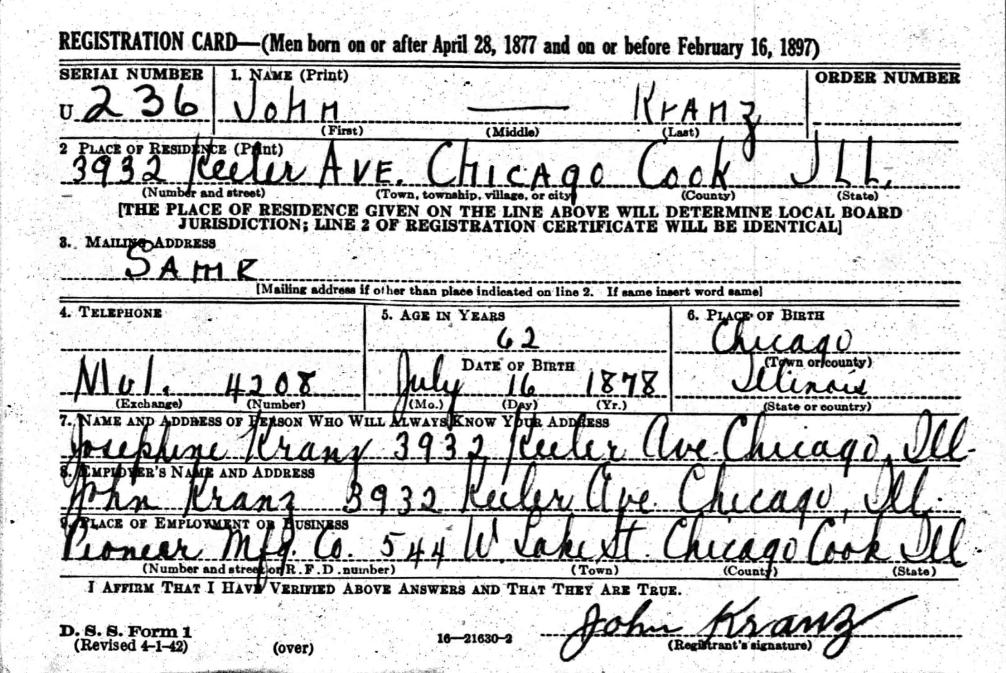 REGISTRATION CARD—(Men born on or after April 28, 1877 and on or before February 16, 1897)
SERIAL NUMBER 1. NAME (Print) ORDER NUMBER
U 236 John — Kranz
(First) (Middle) (Last)
2 PLACE OF RESIDENCE (Print)
3932 Keeler AVE. CHICAGO Cook ILL.
(Number and street) (Town, township, village, or city) (County) (State)
[THE PLACE OF RESIDENCE GIVEN ON THE LINE ABOVE WILL DETERMINE LOCAL BOARD
JURISDICTION; LINE 2 OF REGISTRATION CERTIFICATE WILL BE IDENTICAL]
3. MAILING ADDRESS
SAME
[Mailing address if other than place indicated on line 2. If same insert word same]
4. TELEPHONE 5. AGE IN YEARS 6. PLACE OF BIRTH
62 Chicago
DATE OF BIRTH (Town or county)
Mul. 4208 July 16 1878 Illinois
(Exchange) (Number) (Mo.) (Day) (Yr.) (State or country)
7. NAME AND ADDRESS OF PERSON WHO WILL ALWAYS KNOW YOUR ADDRESS
Josephine Kranz 3932 Keeler Ave Chicago, Ill.
8. EMPLOYER'S NAME AND ADDRESS
John Kranz 3932 Keeler Ave. Chicago, Ill.
9. PLACE OF EMPLOYMENT OR BUSINESS
Pioneer Mfg. Co. 544 W Lake St. Chicago Cook Ill
(Number and street or R. F. D. number) (Town) (County) (State)
I AFFIRM THAT I HAVE VERIFIED ABOVE ANSWERS AND THAT THEY ARE TRUE.
John Kranz
D. S. S. Form 1
(Revised 4-1-42) (over) 16—21630-2 (Registrant's signature)